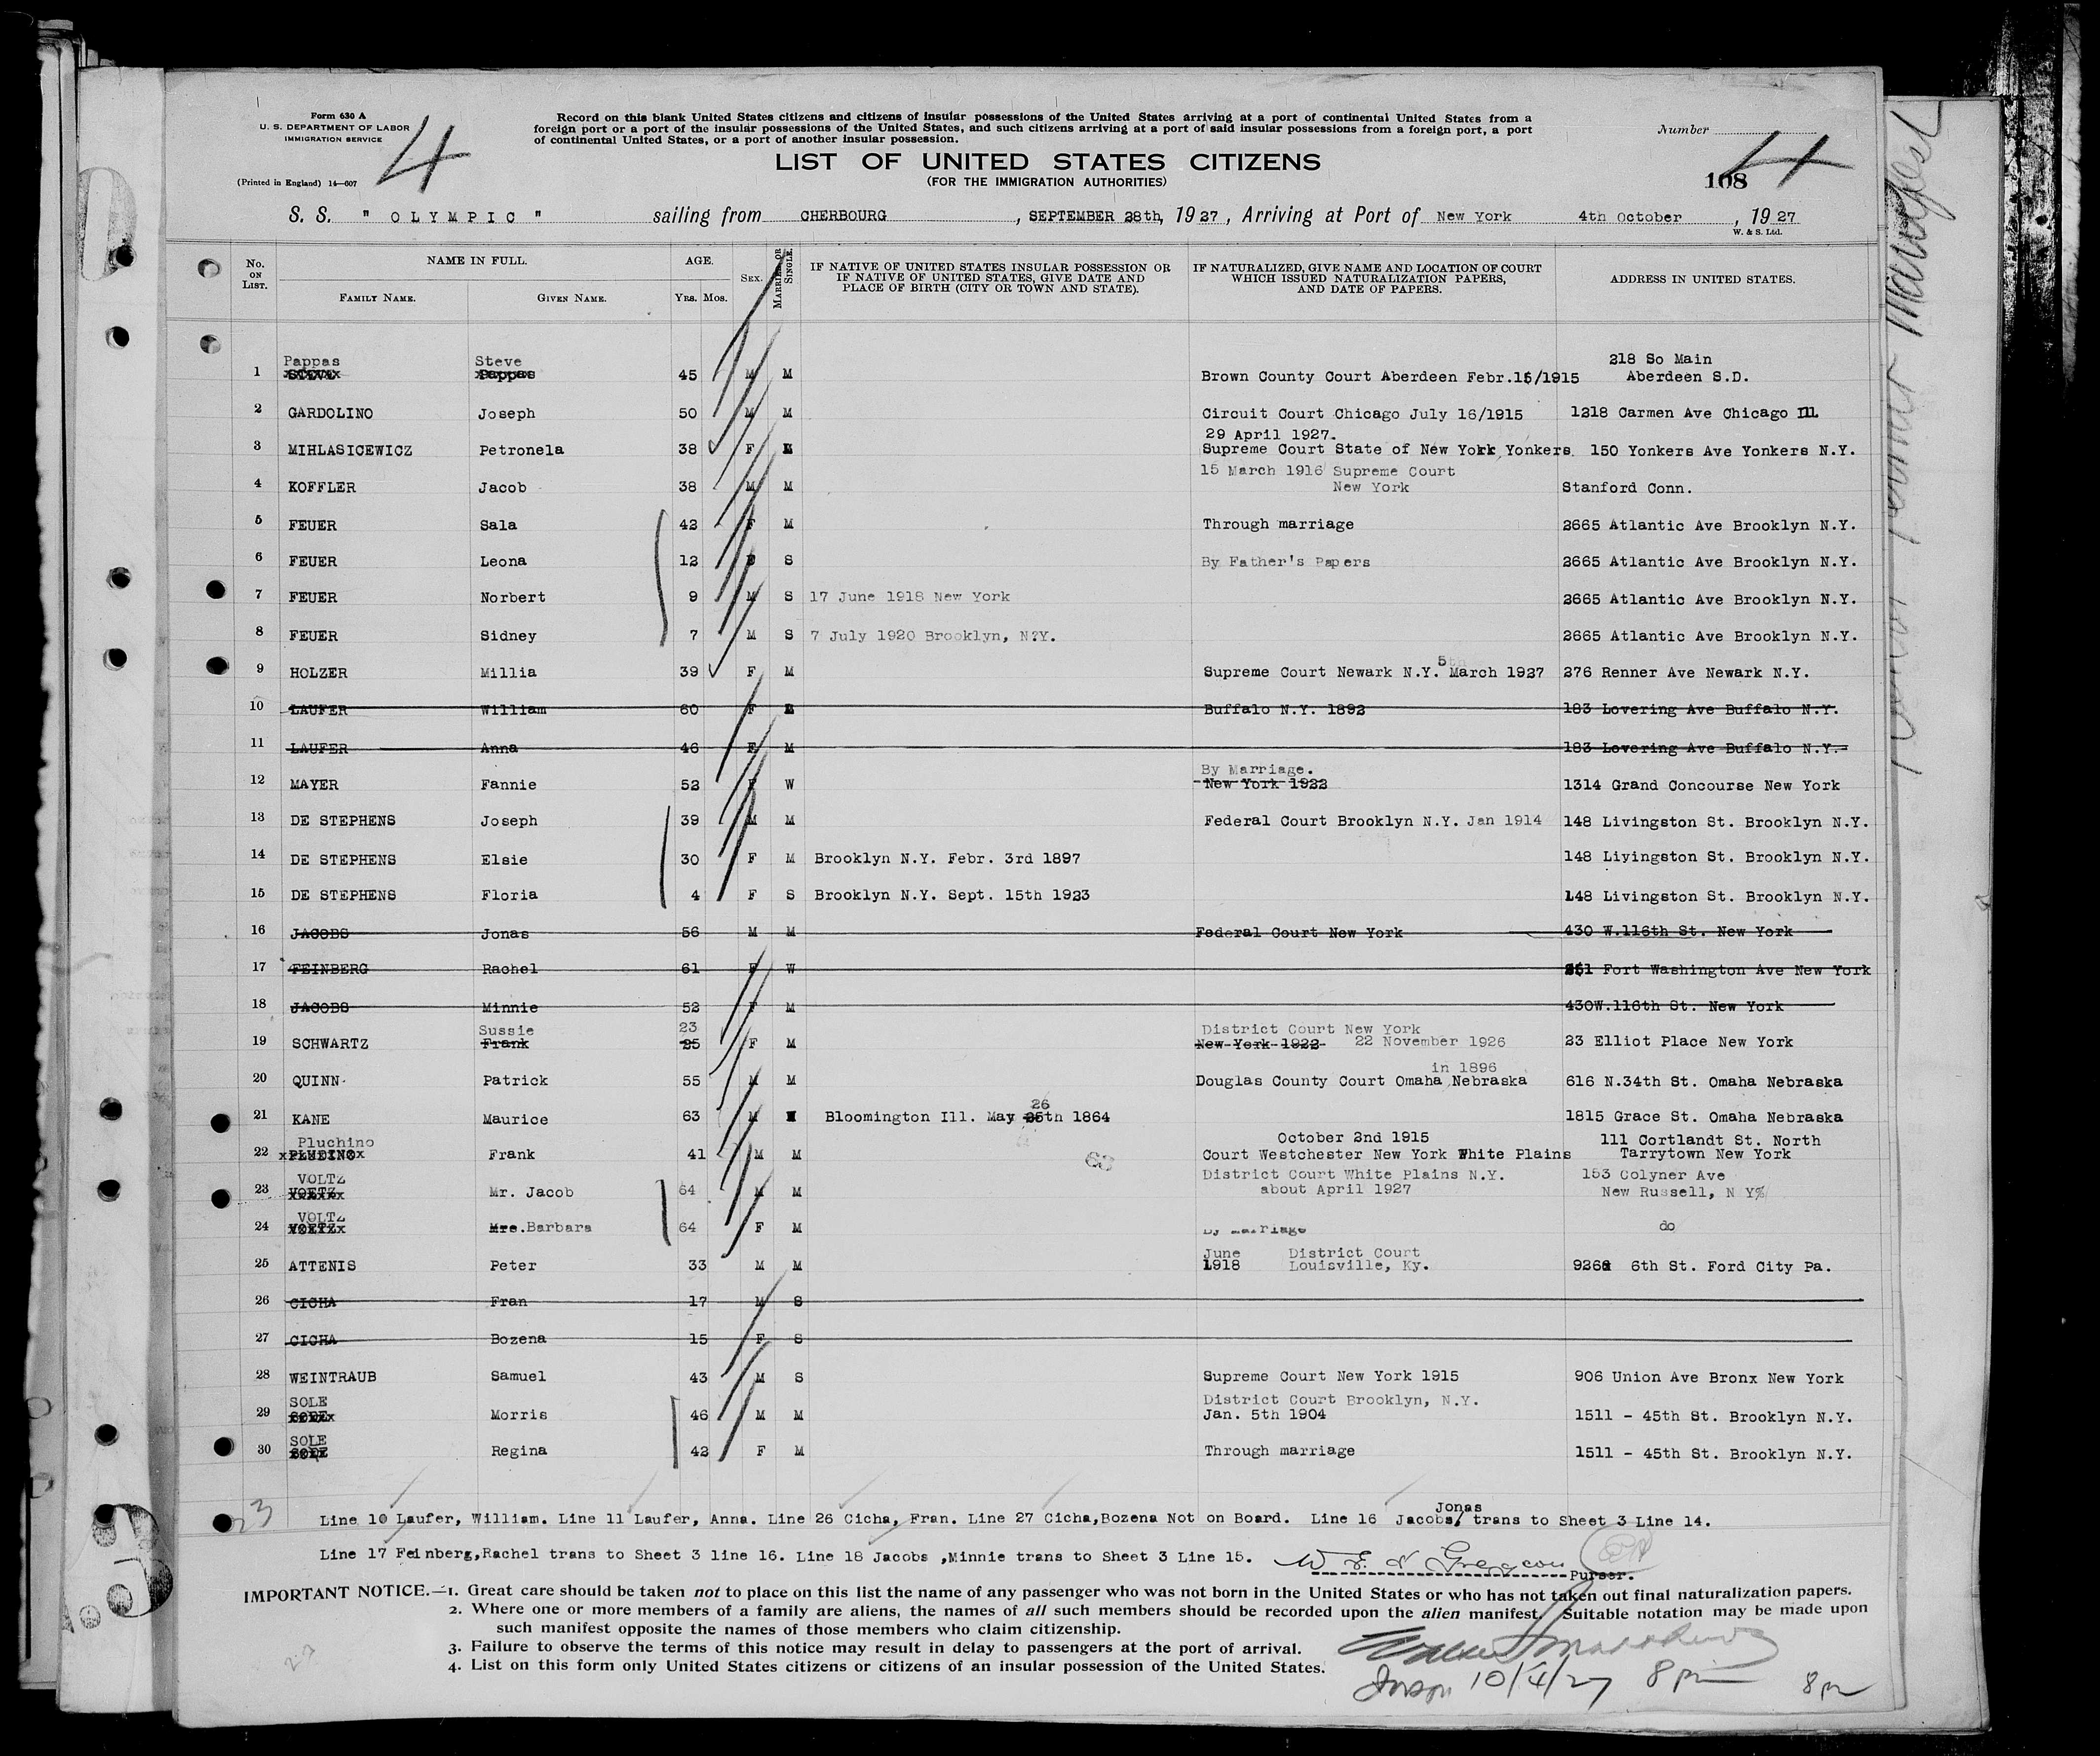 Form 630 A
U. S. DEPARTMENT OF LABOR
IMMIGRATION SERVICE
(Printed in England) 14—607
4
Record on this blank United States citizens and citizens of insular possessions of the United States arriving at a port of continental United States from a
foreign port or a port of the insular possessions of the United States, and such citizens arriving at a port of said insular possessions from a foreign port, a port
of continental United States, or a port of another insular possession.
LIST OF UNITED STATES CITIZENS
(FOR THE IMMIGRATION AUTHORITIES)
Number
108
4
S. S. " OLYMPIC " sailing from CHERBOURG , SEPTEMBER 28th, 1927 , Arriving at Port of New York 4th October , 1927
W. & S. Ltd.
No. ON LIST. NAME IN FULL. FAMILY NAME. GIVEN NAME. AGE. Yrs. Mos. SEX. MARRIED OR SINGLE. IF NATIVE OF UNITED STATES INSULAR POSSESSION OR IF NATIVE OF UNITED STATES, GIVE DATE AND PLACE OF BIRTH (CITY OR TOWN AND STATE). IF NATURALIZED, GIVE NAME AND LOCATION OF COURT WHICH ISSUED NATURALIZATION PAPERS, AND DATE OF PAPERS. ADDRESS IN UNITED STATES.
Pappas Steve 218 So Main
1 STEVE Pappas 45 M M Brown County Court Aberdeen Febr.15/1915 Aberdeen S.D.
2 GARDOLINO Joseph 50 M M Circuit Court Chicago July 16/1915 1218 Carmen Ave Chicago Ill
29 April 1927.
3 MIHLASICEWICZ Petronela 38 F Supreme Court State of New York Yonkers 150 Yonkers Ave Yonkers N.Y.
15 March 1916 Supreme Court
4 KOFFLER Jacob 38 M M New York Stanford Conn.
5 FEUER Sala 42 F M Through marriage 2665 Atlantic Ave Brooklyn N.Y.
6 FEUER Leona 12 F S By Father's Papers 2665 Atlantic Ave Brooklyn N.Y.
7 FEUER Norbert 9 M S 17 June 1918 New York 2665 Atlantic Ave Brooklyn N.Y.
8 FEUER Sidney 7 M S 7 July 1920 Brooklyn, N?Y. 2665 Atlantic Ave Brooklyn N.Y.
5th
9 HOLZER Millia 39 F M Supreme Court Newark N.Y. March 1927 276 Renner Ave Newark N.Y.
10 LAUFER William 60 F Buffalo N.Y. 1892 183 Lovering Ave Buffalo N.Y.
11 LAUFER Anna 46 F M 183 Lovering Ave Buffalo N.Y.
By Marriage.
12 MAYER Fannie 52 F W New York 1922 1314 Grand Concourse New York
13 DE STEPHENS Joseph 39 M M Federal Court Brooklyn N.Y. Jan 1914 148 Livingston St. Brooklyn N.Y.
14 DE STEPHENS Elsie 30 F M Brooklyn N.Y. Febr. 3rd 1897 148 Livingston St. Brooklyn N.Y.
15 DE STEPHENS Floria 4 F S Brooklyn N.Y. Sept. 15th 1923 148 Livingston St. Brooklyn N.Y.
16 JACOBS Jonas 56 M M Federal Court New York 430 W.116th St. New York
17 FEINBERG Rachel 61 F W Fort Washington Ave New York
18 JACOBS Minnie 52 F M 430W.116th St. New York
Sussie 23 District Court New York
19 SCHWARTZ Frank 25 F M New York 1922 22 November 1926 23 Elliot Place New York
in 1896
20 QUINN Patrick 55 M M Douglas County Court Omaha Nebraska 616 N.34th St. Omaha Nebraska
26
21 KANE Maurice 63 M Bloomington Ill. May 25th 1864 1815 Grace St. Omaha Nebraska
Pluchino October 2nd 1915 111 Cortlandt St. North
22 PLUDINO Frank 41 M M Court Westchester New York White Plains Tarrytown New York
VOLTZ District Court White Plains N.Y. 153 Colyner Ave
23 VOETZ Mr. Jacob 64 M M about April 1927 New Russell, N Y%
VOLTZ
24 VOETZ Mrs. Barbara 64 F M By marriage do
June District Court
25 ATTENIS Peter 33 M M 1918 Louisville, Ky. 926 6th St. Ford City Pa.
26 CICHA Fran 17 M S
27 CICHA Bozena 15 F S
28 WEINTRAUB Samuel 43 M S Supreme Court New York 1915 906 Union Ave Bronx New York
SOLE District Court Brooklyn, N.Y.
29 Morris 46 M M Jan. 5th 1904 1511 - 45th St. Brooklyn N.Y.
SOLE
30 Regina 42 F M Through marriage 1511 - 45th St. Brooklyn N.Y.
23
Jonas
Line 10 Laufer, William. Line 11 Laufer, Anna. Line 26 Cicha, Fran. Line 27 Cicha,Bozena Not on Board. Line 16 Jacobs, trans to Sheet 3 Line 14.
Line 17 Feinberg,Rachel trans to Sheet 3 line 16. Line 18 Jacobs ,Minnie trans to Sheet 3 Line 15.
Purser.
IMPORTANT NOTICE.—1. Great care should be taken not to place on this list the name of any passenger who was not born in the United States or who has not taken out final naturalization papers.
2. Where one or more members of a family are aliens, the names of all such members should be recorded upon the alien manifest. Suitable notation may be made upon
such manifest opposite the names of those who claim citizenship.
3. Failure to observe the terms of this notice may result in delay to passengers at the port of arrival.
4. List on this form only United States citizens or citizens of an insular possession of the United States.
10/4/27 8 pm 8 pm